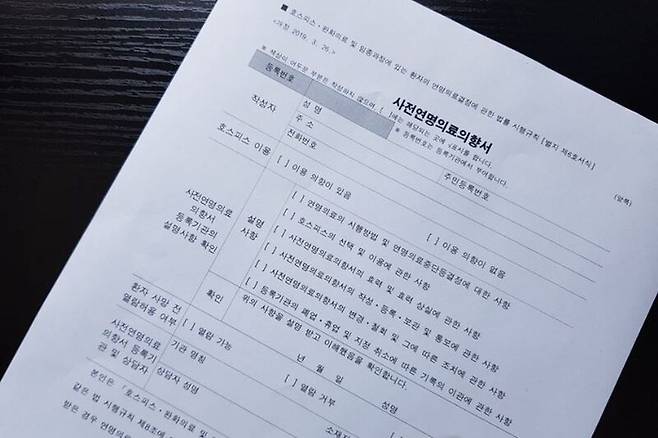 ■ 호스피스ㆍ완화의료 및 임종과정에 있는 환자의 연명의료결정에 관한 법률 시행규칙 [별지 제6호서식]
<개정 2019. 3. 26.>
사전연명의료의향서
(앞쪽)
※ 색상이 어두운 부분은 작성하지 않으며, [ ]에는 해당되는 곳에 √표시를 합니다.
등록번호
※ 등록번호는 등록기관에서 부여합니다.
작성자
성 명
주민등록번호
주 소
전화번호
호스피스 이용
[ ] 이용 의향이 있음
[ ] 이용 의향이 없음
사전연명의료
의향서
등록기관의
설명사항 확인
설명
사항
[ ] 연명의료의 시행방법 및 연명의료중단등결정에 대한 사항
[ ] 호스피스의 선택 및 이용에 관한 사항
[ ] 사전연명의료의향서의 효력 및 효력 상실에 관한 사항
[ ] 사전연명의료의향서의 작성ㆍ등록ㆍ보관 및 통보에 관한 사항
[ ] 사전연명의료의향서의 변경ㆍ철회 및 그에 따른 조치에 관한 사항
[ ] 등록기관의 폐업ㆍ휴업 및 지정 취소에 따른 기록의 이관에 관한 사항
확인
위의 사항을 설명 받고 이해했음을 확인합니다.
년 월 일
성명
환자 사망 전
열람허용 여부
[ ] 열람 가능
[ ] 열람 거부
사전연명의료
의향서 등록기
관 및 상담자
기관 명칭
소재지
상담자 성명
본인은 「호스피스ㆍ완화의료 및
같은 법 시행규칙 제8조에
받은 경우 연명의료